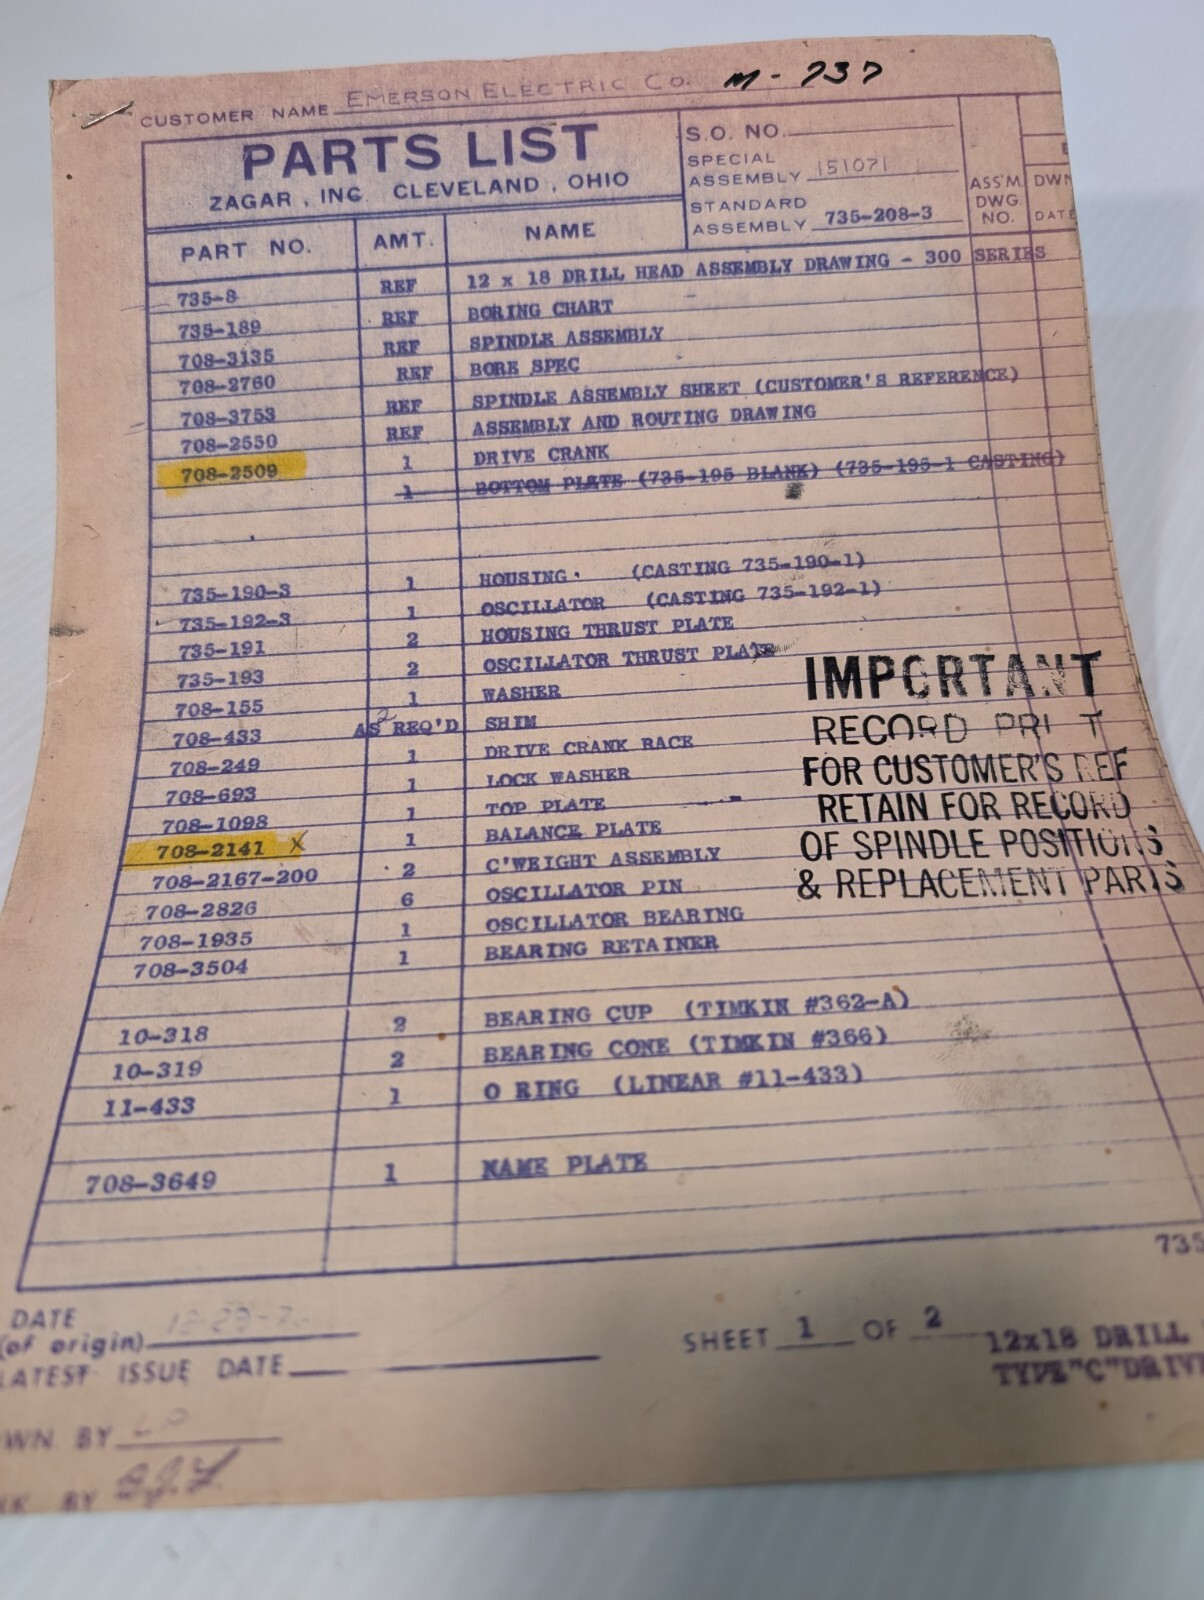 CUSTOMER NAME EMERSON ELECTRIC CO. M-737
PARTS LIST
ZAGAR, INC. CLEVELAND, OHIO
S.O. NO.
SPECIAL
ASSEMBLY 151071
STANDARD
ASSEMBLY 735-208-3
ASS'M.
DWG.
NO.
DWN
DATE
PART NO. AMT. NAME
735-8 REF 12 x 18 DRILL HEAD ASSEMBLY DRAWING - 300 SERIES
735-189 REF BORING CHART
708-3135 REF SPINDLE ASSEMBLY
708-2760 REF BORE SPEC
708-3753 REF SPINDLE ASSEMBLY SHEET (CUSTOMER'S REFERENCE)
708-2550 REF ASSEMBLY AND ROUTING DRAWING
708-2509 1 DRIVE CRANK
1 BOTTOM PLATE (735-195 BLANK) (735-195-1 CASTING)
735-190-3 1 HOUSING. (CASTING 735-190-1)
735-192-3 1 OSCILLATOR (CASTING 735-192-1)
735-191 2 HOUSING THRUST PLATE
735-193 2 OSCILLATOR THRUST PLATE
708-155 1 WASHER
708-433 AS REQ'D SHIM
2
708-249 1 DRIVE CRANK RACE
708-693 1 LOCK WASHER
708-1098 1 TOP PLATE
708-2141 X 1 BALANCE PLATE
708-2167-200 2 C'WEIGHT ASSEMBLY
708-2826 6 OSCILLATOR PIN
708-1935 1 OSCILLATOR BEARING
708-3504 1 BEARING RETAINER
IMPORTANT
RECORD PRI T
FOR CUSTOMER'S REF
RETAIN FOR RECORD
OF SPINDLE POSITIONS
& REPLACEMENT PARTS
10-318 2 BEARING CUP (TIMKIN #362-A)
10-319 2 BEARING CONE (TIMKIN #366)
11-433 1 O RING (LINEAR #11-433)
708-3649 1 NAME PLATE
735
DATE
(of origin) 12-29-7
LATEST ISSUE DATE
SHEET 1 OF 2
12x18 DRILL
TYPE "C" DRIVE
WN. BY
BY